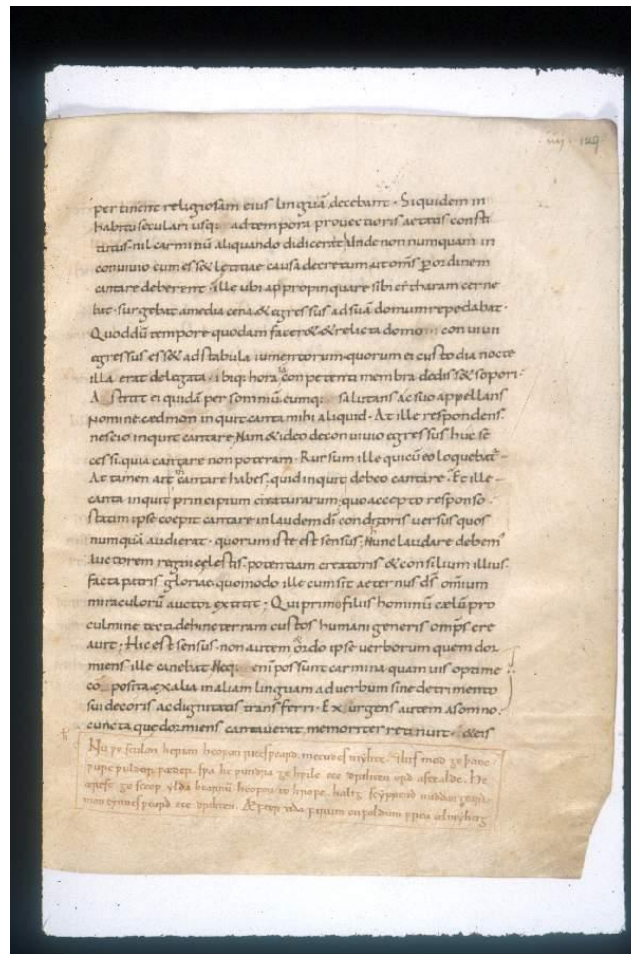 129
pertinent religiosam eius linguā decebant · Siquidem in
habitu seculari usq: ad tempora prouectioris aetatis consti
tutus · nil carminū aliquando didicerat; Unde non numquam in
conuiuio cum ess& lętitiae causa decretum ut om̄s ꝑ ordinem
cantare deberent · ille ubi appropinquare sibi cytharam cerne
bat · surgebat a media cena & egressus ad suā domum repedabat ·
Quod dū tempore quodam facer& & relicta domo conuiuii
egressus ess& ad stabula iumentorum quorum ei custodia nocte
illa erat delegata · ibiq: hora conpetenti membra dediss& sopori ·
Astitit ei quidā per somniū eumq: salutans ac suo appellans
nomine cædmon inquit canta mihi aliquid · At ille respondens
nescio inquit cantare, Nam & ideo de conuiuio egressus huc se
cessi, quia cantare non poteram · Rursum ille qui cū eo loquebat̄
At tamen ait cantare habes; quid inquit debeo cantare · Et ille
canta inquit principium creaturarum; quo accepto responso
statim ipse coepit cantare in laudem dī conditoris uersus quos
numquā audierat · quorum iste est sensus; Nunc laudare debem'
auctorem regni cęlestis · potentiam creatoris & consilium illius ·
facta patris gloriae, quomodo ille cum sit aeternus ds̄ omnium
miraculorū auctor extitit; Qui primo filiis hominū cælū pro
culmine tecti dehinc terram custos humani generis omp̄s cre
auit; Hic est sensus · non autem ordo ipse uerborum quem dor
miens ille canebat Neq: enī possunt carmina quamuis optime
composita, ex alia in aliam linguam ad uerbum sine detrimento
sui decoris ac dignitatis transferri · Exurgens autem a somno ·
cuncta que dormiens cantauerat, memoriter retinuit · & eis
Nu ƿe sculon herian heofon rices ƿeard, metudes myhte · his mod geþanc
ƿurc ƿuldor fæder, sƿa he ƿundra gehƿile ece drihten ord astealde · He
ærest gesceop, ylda bearnū heofon to hrofe, halig scyppend middangeard
man cynnes ƿeard ece drihten. Æfter tida firum on foldum frea ælmyhtig